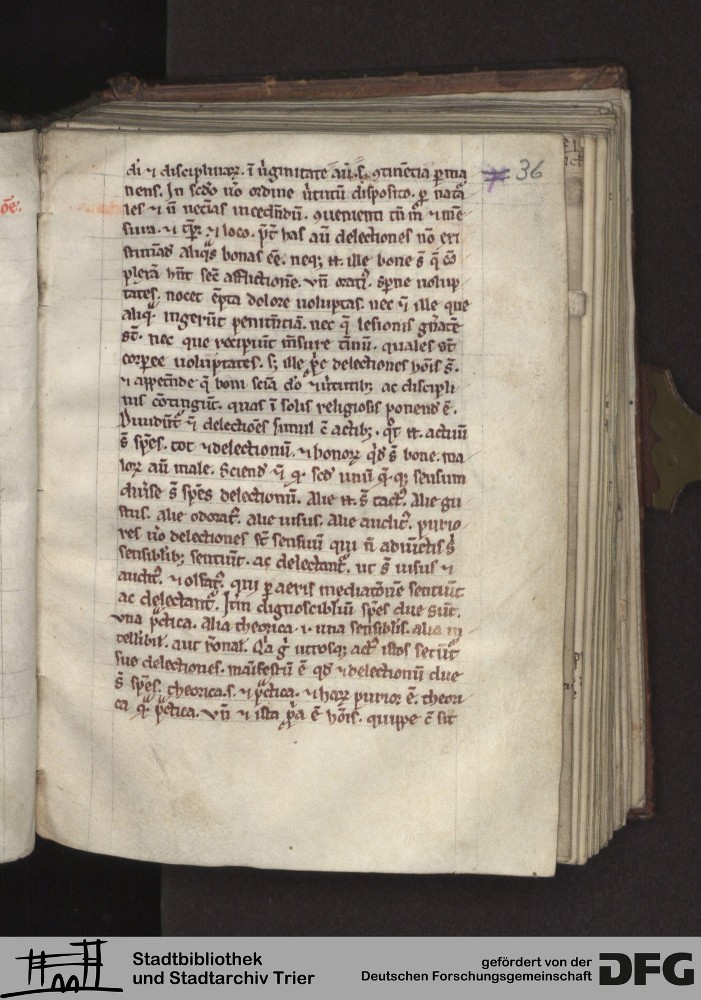 õe.
36
di ⁊ discipliuaꝝ. ĩ ũginitate aũ .s. ꝯtinẽcia ꝑma
nens. Jn scđo ũo ordine ũtutũ disposito. ꝑ natã
les ⁊ ñ necias incedñdũ. ꝯuenienti tñ m̃ ⁊ mẽ
sura. ⁊ tꝑr. ⁊ loco. p̃t has aũ delectiones nõ exi
stimãđ aliqͣs bonas eẽ. neqꝫ .n. ille bone s̃ q̃ cõ
plexã hñt sec̃ afflictionẽ. vñ oratꝰ. sperne volup
tates. nocet ẽpta dolore uoluptas. nec ñ ille que
aliqͣ. ingerũt penitẽciã. nec q̃ lesionis
st̃. nec que recipiũt mẽsure tñnũ. quales st̃
corpee uoluptates. sꝫ ille ꝑe delectiones hõis s̃.
⁊ appẽnde q̃ boni sciã đo ⁊ ũtutibꝫ ac discipli
nis cõtingũt. quas ĩ solis religiosis ponenđ ẽ.
Diuidũt ñ delectiões simul c̃ actibꝫ. qͦt .n. actuũ
s̃ sp̃es. tot ⁊ delectionũ. ⁊ honoꝝ qͥđ s̃ bone. ma
loꝝ aũ male. Sciend ñ q. scđ unũ q̃ qꝫ sensum
diũse s̃ sp̃es delectionũ. Alie .n. s̃ tactꝰ. Alie gu
stus. alie odoratꝰ. alie uisus. Alie auditꝰ. purio
res ũo delectiones st̃ sensuũ qui ñ adiũctis s̃
sensiblibꝫ sentiũt. ac delectant̃. ut s̃ uisus ⁊
auditꝰ. ⁊ olfatꝰ. qui ꝑ aeris mediatõnẽ sentiũt
ac delectant̃. Jtm̃ dignoscibliũ sp̃es due sũt.
vna p̃ctica. alia theorica .i. una sensiblis. alia in
tellibil. aut rõnal. Q̃a g̃ utrosqꝫ actꝰ istos secũt̃
sue delectiones. mãifestũ ẽ qđ ⁊ delectionũ due
s̃ sp̃es. theorica .s. ⁊ p̃ctica. ⁊ haꝝ purior ẽ. theori
ca q. p̃ctica. vñ ⁊ ista p̃a ẽ hõis. quippe c̃ sit
Stadtbibliothek
und Stadtarchiv Trier
gefördert von der
Deutschen Forschungsgemeinschaft
DFG